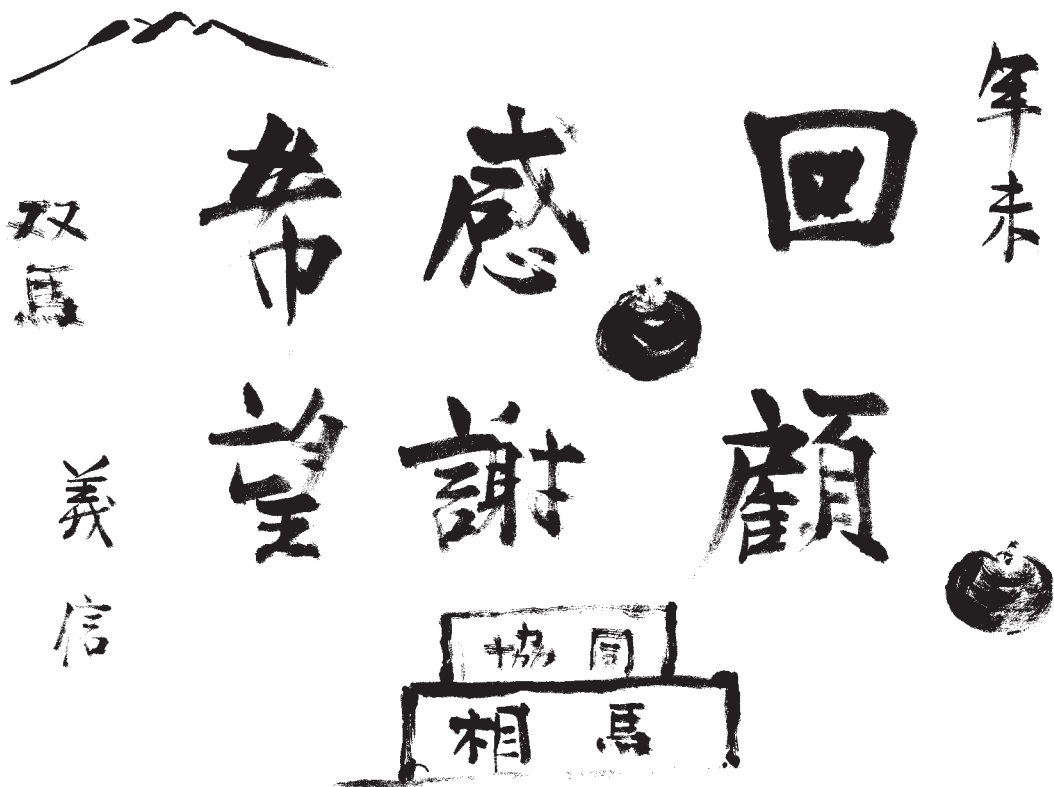 年末
回顧
感謝
希望
双馬
義信
協同
相馬